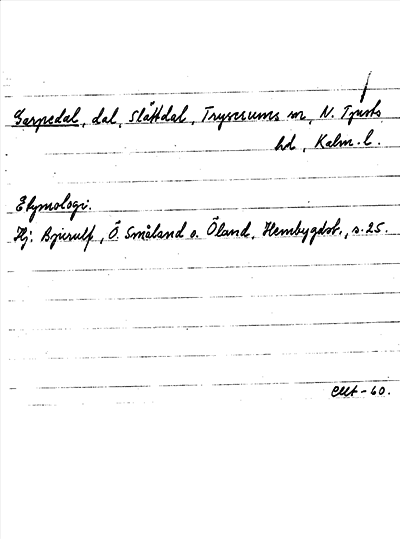 Garpedal, dal, Slåttdal, Tryserums sn, N. Tjusts
hd, Kalm. l.
Etymologi.
Hj. Bjurulf, Ö. Småland o. Öland, Hembygdsb., s. 25.
-60.